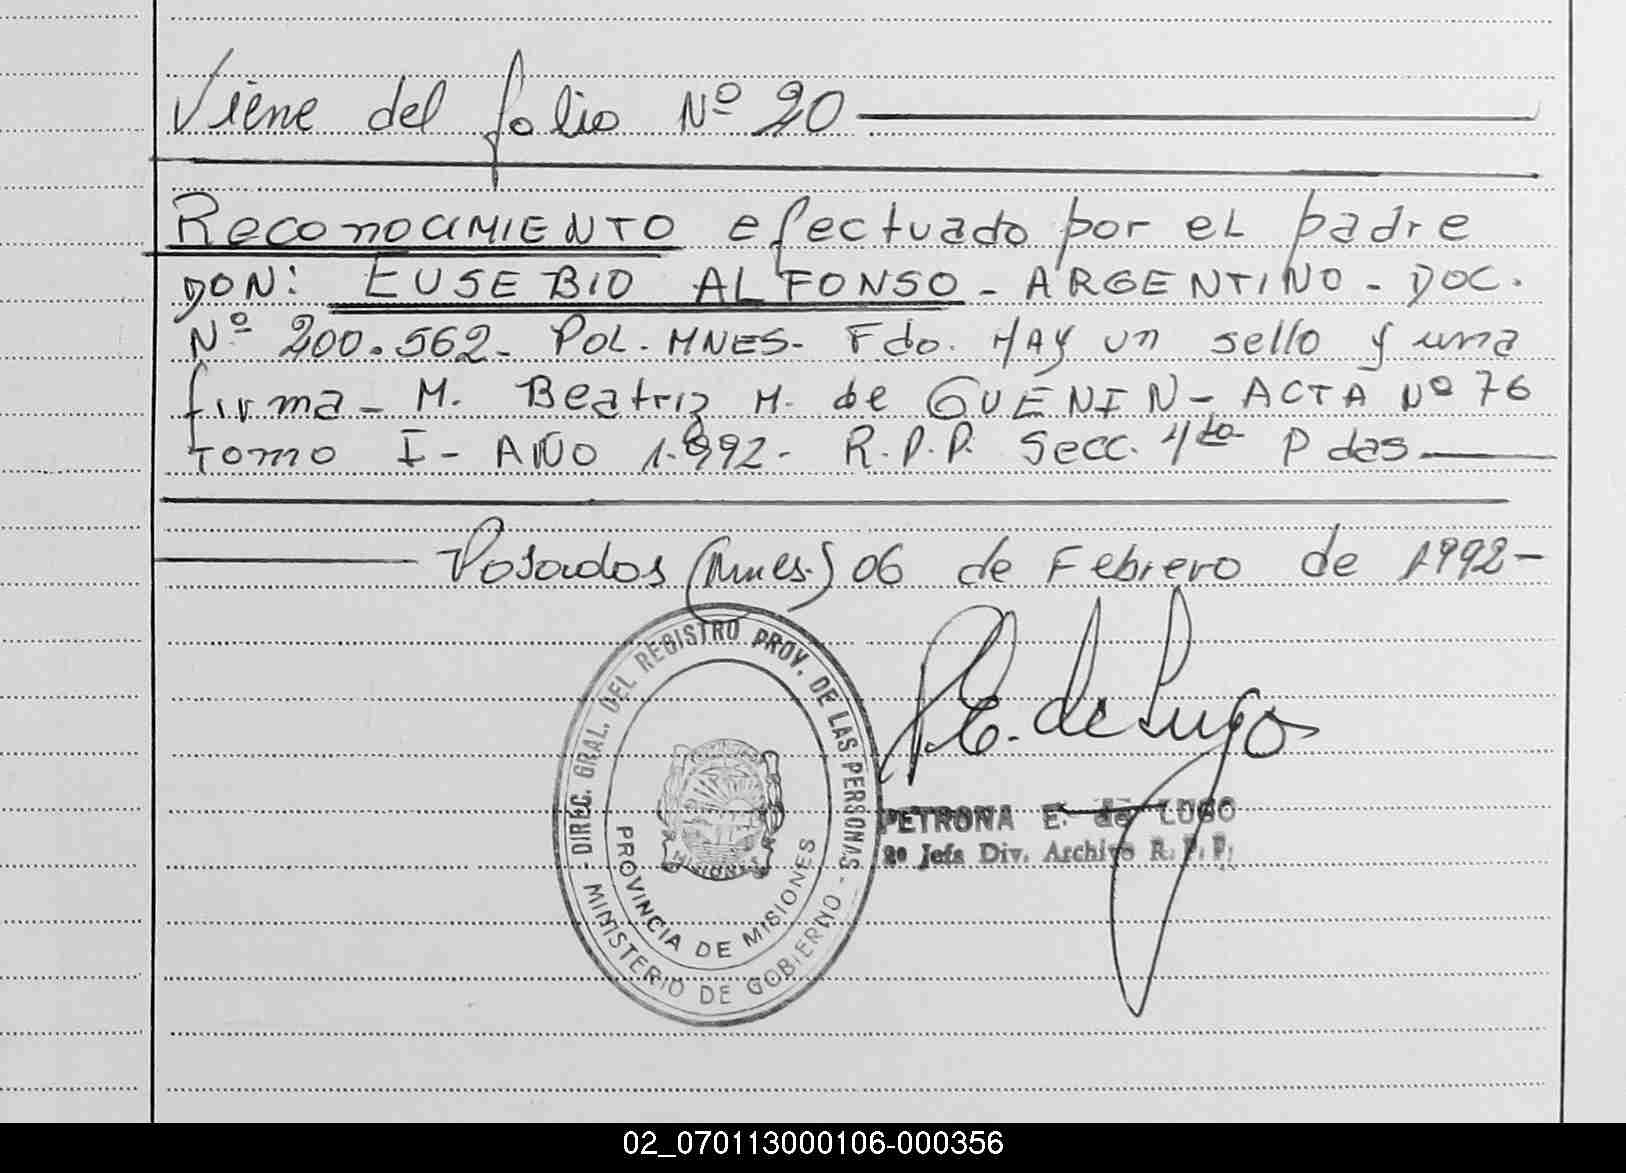 Viene del folio Nº 20
Reconocimiento efectuado por el padre
DON: EUSEBIO ALFONSO - ARGENTINO - DOC.
Nº 200.562 - POL. MNES - Fdo. HAY un sello y una
firma - M. Beatriz M. de GUENIN - ACTA Nº 76
tomo I - AÑO 1.992 - R.P.P. Secc. 4ta Pdas
Posadas (Mnes.) 06 de Febrero de 1992 -
P.E. de Lugo
PETRONA E. de LUGO
2º Jefa Div. Archivo R. P. P.
DIREC. GRAL. DEL REGISTRO PROV. DE LAS PERSONAS -
MINISTERIO DE GOBIERNO -
PROVINCIA DE MISIONES
MISIONES
02_070113000106-000356